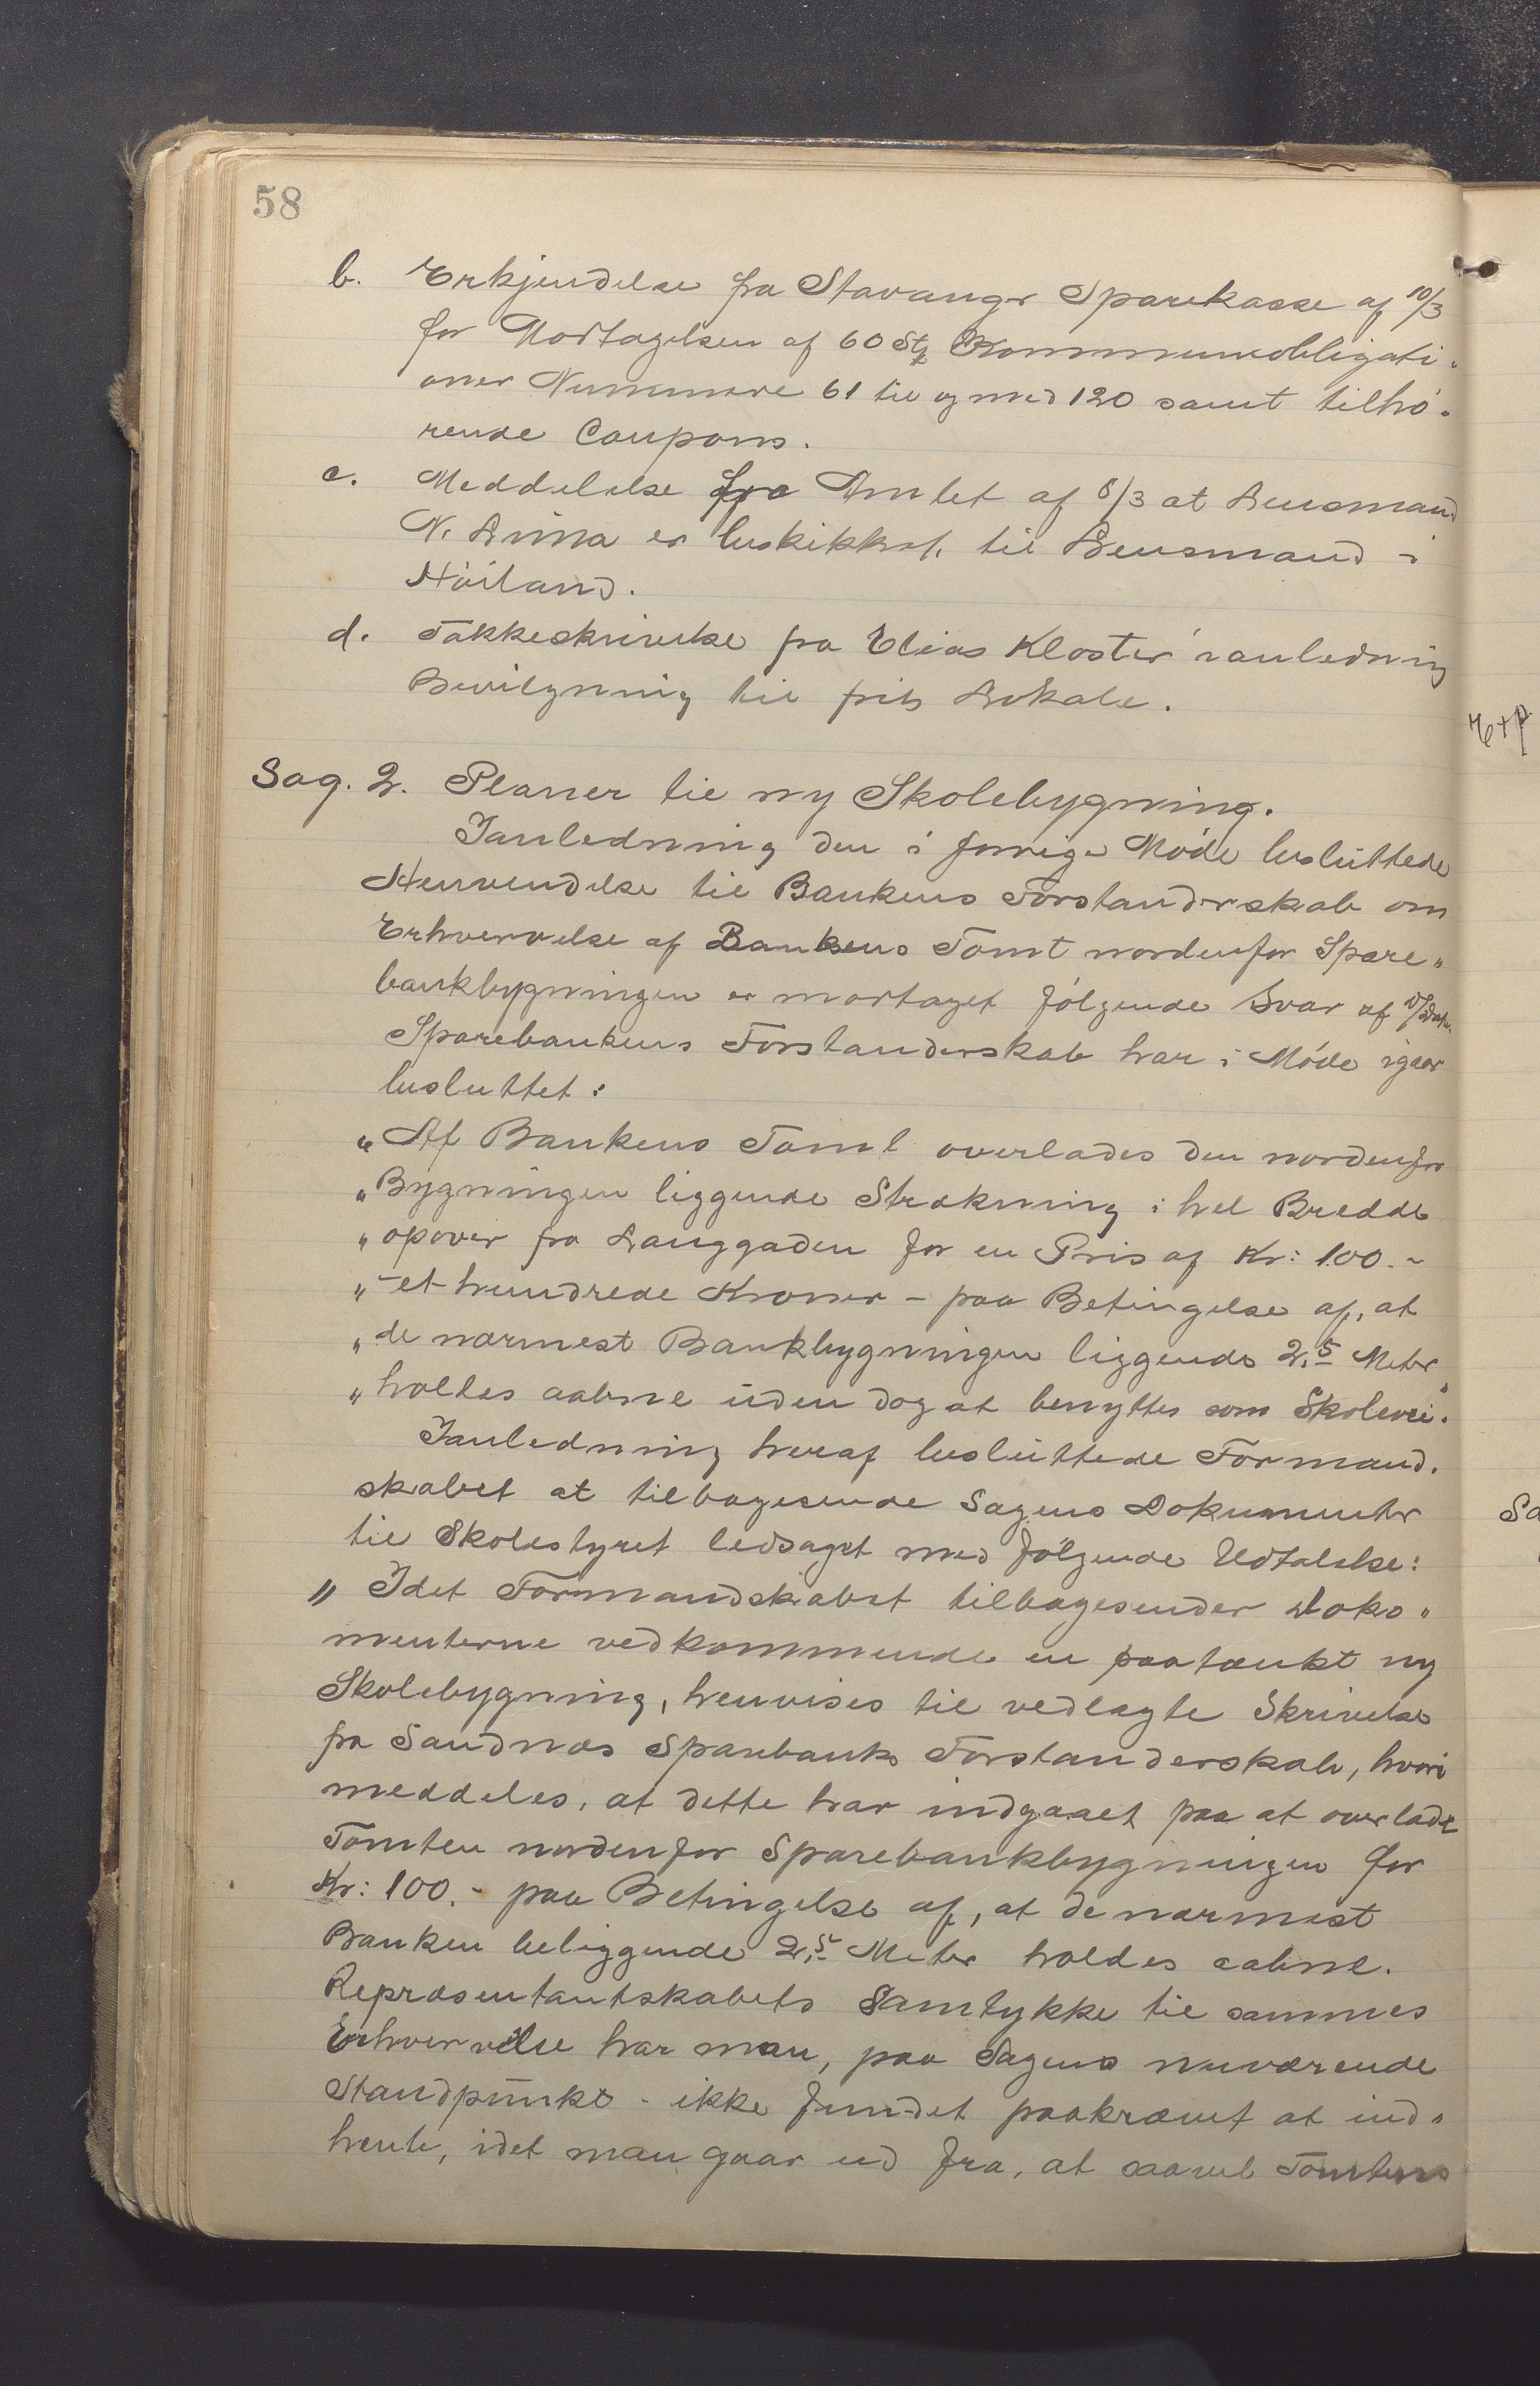 58
b. Erkjendelse fra Stavanger Sparekasse af 10/3
for Modtagelsen af 60 Stk Kommuneobligati-
oner Nummere 61 til og med 120 samt tilhö-
rende Coupons.
c. Meddelelse fra Amtet af 8/3 at Lensmand
N. Lima er beskikket til Lensmand i
Höiland.
d. Takkeskrivelse fra Elias Kloster ianledning
Bevilgning til frit Lokale.
Sag. 2. Planer til ny Skolebygning.
Ianledning den i forrige Möde besluttede
Henvendelse til Bankens Forstanderskab om
Erhvervelse af Bankens Tomt nordenfor Spare„
bankbygningen er mortaget fölgende Svar af
Sparebankens Forstanderskab har i Möde igaar
besluttet:
„Af Bankens Tomt overlades den nordenfor
„Bygningen liggende Strækning i hel Bredde
„opover fra Langgaden for en Pris af Kr: 100.-
„-et hundrede Kroner - paa Betingelse af, at
„de nærmest Bankbygningen liggende 2,5 Meter
„holdes aabne uden dog at benyttes som Skolevei."
Ianledning heraf besluttede Formand-
skabet at tilbagesende Sagens Dokumenter
til Skolestyret ledsaget med fölgende Udtalelse:
„Idet Formandskabet tilbagesender Doko„
menterne vedkommende en paatænkt ny
Skolebygning, henvises til vedlagte Skrivelse
fra Sandnæs Sparebanks Forstanderskab, hvori
meddeles, at dette har indgaaet paa at overlade
Tomten nordenfor Sparebankbygningen for
Kr: 100.- paa Betingelse af, at de nærmest
Banken beliggende 2,5 Meter holdes aabne.
Repræsentantskabets Samtykke til sammes
Erhvervelse har man, paa Sagens nuværende
Standpunkt - ikke fundet paakrævet at ind„
hente, idet man gaar ud fra, at saavel Tomtens
Exp
Sa